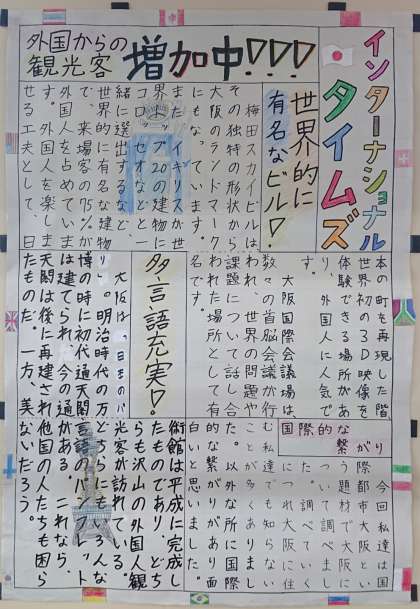 インターナショナル
タイムズ
外国からの
観光客
増加中!!!
世界的に
有名なビル!
梅田スカイビルは、
その独特の形状から
大阪のランドマーク
にもなっています。
また、イギリスが世
界のトップ20の建物に
コロッセオなどと一
緒に選出するなど、
世界的に有名な建物
で、来場客の75%が
外国人を占めていま
す。外国人を楽しま
せる工夫として、日
本の町を再現した階
世界初の3D映像を
体験できる場所があ
り、外国人に人気で
す。
大阪国際会議場は、
数々の首脳会議が行
われ、世界の問題や
課題について話し合
われた場所として有
名です。
多言語充実!
大阪は、
リ」。明治時代の万
博の時に初代通天閣
は建てられ、今の通
天閣は後に再建され
たものだ。一方、美
術館は平成に完成し
たものであり、どち
らも沢山の外国人観
光客が訪れている。
どちらにもいろんな
言語のパンフレット
がある。これなら、
他国の人たちも困ら
ないだろう。
国際的な繋がり
今回私達は国
際都市大阪とい
う題材で大阪に
ついて調べていまし
た。調べていく
につれ大阪に住
む私達でも知らない
ことが多くありまし
た。以外な所に国際
的な繋がりがあり面
白いと思いました。